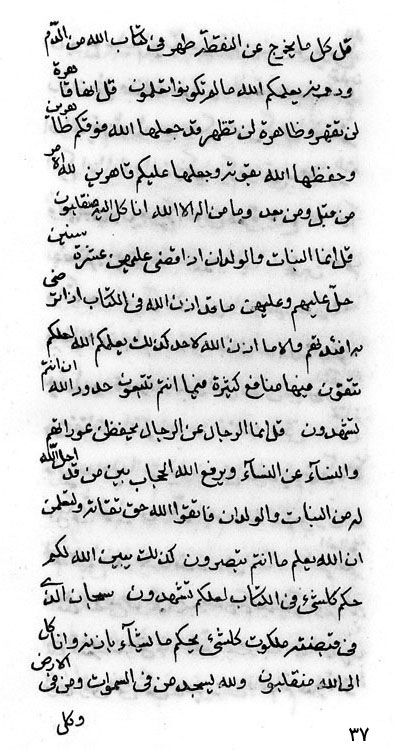 قل كل ما يخرج عن النقطة طهر فى كتاب الله من الدم
ودون يعلمكم الله ما لم تكونوا تعلمون قل انها قاهرة
لن تقهر وظاهرة لن تظهر قد جعلها الله فوقكم ظاهرين
وحفظها الله بقوته وجعلها عليكم قاهرين لله الامر
من قبل ومن بعد وما من اله الا الله انا كل اليه منقلبون
قل انما البنات والولدان اذا قضى عليهن عشرة سنين
حل عليهم وعليهن ما قد اذن الله فى الكتاب اذ اترضى
به افئدتهم والا ما اذن الله لاحد كذلك يعلمكم الله لعلكم
تتقون فيها منافع كثيرة فيها انتم تتبعون حدود الله ان انتم
تشهدون قل انما الرجال عن الرجال يحفظن عوراتهم
والنسآء عن النسآء ويرفع الله الحجاب بين من قد احل الله
له من البنات والولدان فاتقوا الله حق تقاته ولتعلمن
ان الله يعلم ما انتم تبصرون كذلك يبين الله لكم
حكم كلشئ فى الكتاب لعلكم تشهدون سبحان الذى
فى قبضته ملكوت كلشئ يحكم ما يشآء باذنه وانا كل
الى الله منقلبون ولله يسجد من فى السموات ومن فى الارض
وكل
٣٧